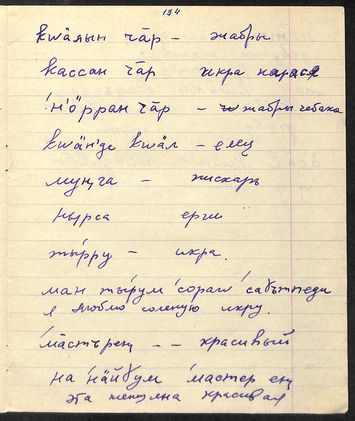 134
кwа̄яын ча̄р – жабры
кассан ча̄р икра карася
'н'ӧрран ча̄р – жабры чебака
кwӓн'де кwӓл – елец
муӊга – пискарь
нырса ерш
ты́рру – икра.
ман ты́рум 'сораw
я люблю соленую икру.
'ма̄стърең – – красивый
на 'нӓйɣум 'ма̄стер ең
эта женщина красивая